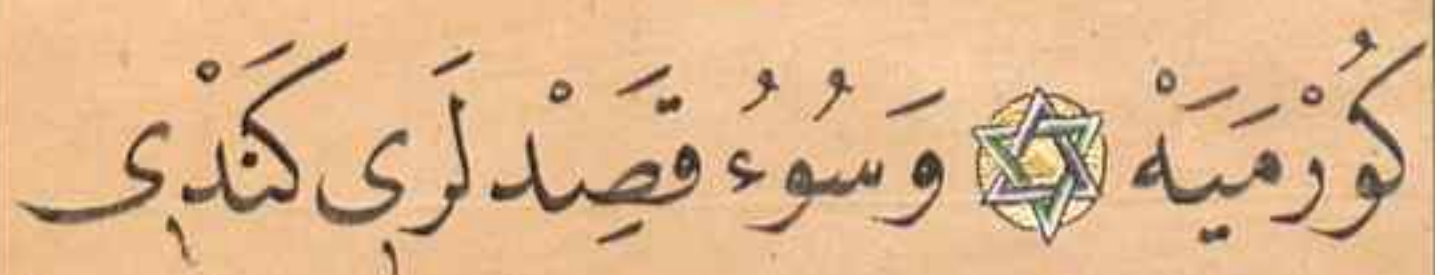 كُورْمَيَهْ وَسُوءُ قَصِدْلَرِي كَنْدِي